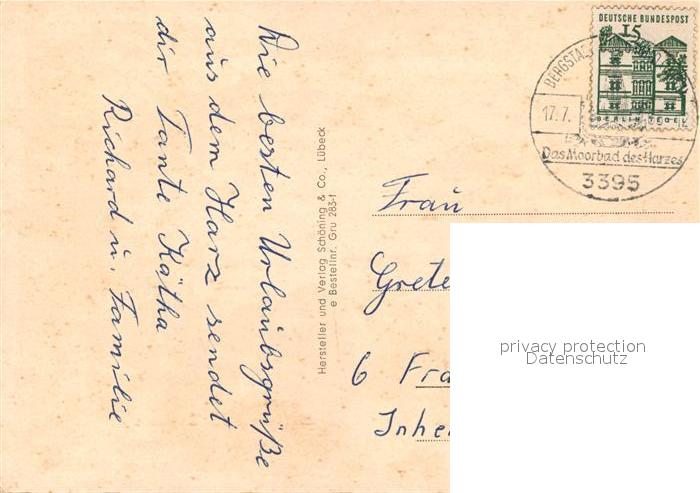 Die besten Urlaubsgrüße
aus dem Harz sendet
dir Tante Kätha
Richard u. Familie
Hersteller und Verlag Schöning & Co., Lübeck
e Bestellnr. Gru 283-f
DEUTSCHE BUNDESPOST
15
BERLIN TEGEL
BERGSTA
17.7.
Das Moorbad des Harzes
3395
Frau
Grete
6 Fra
Inhe
privacy protection
Datenschutz